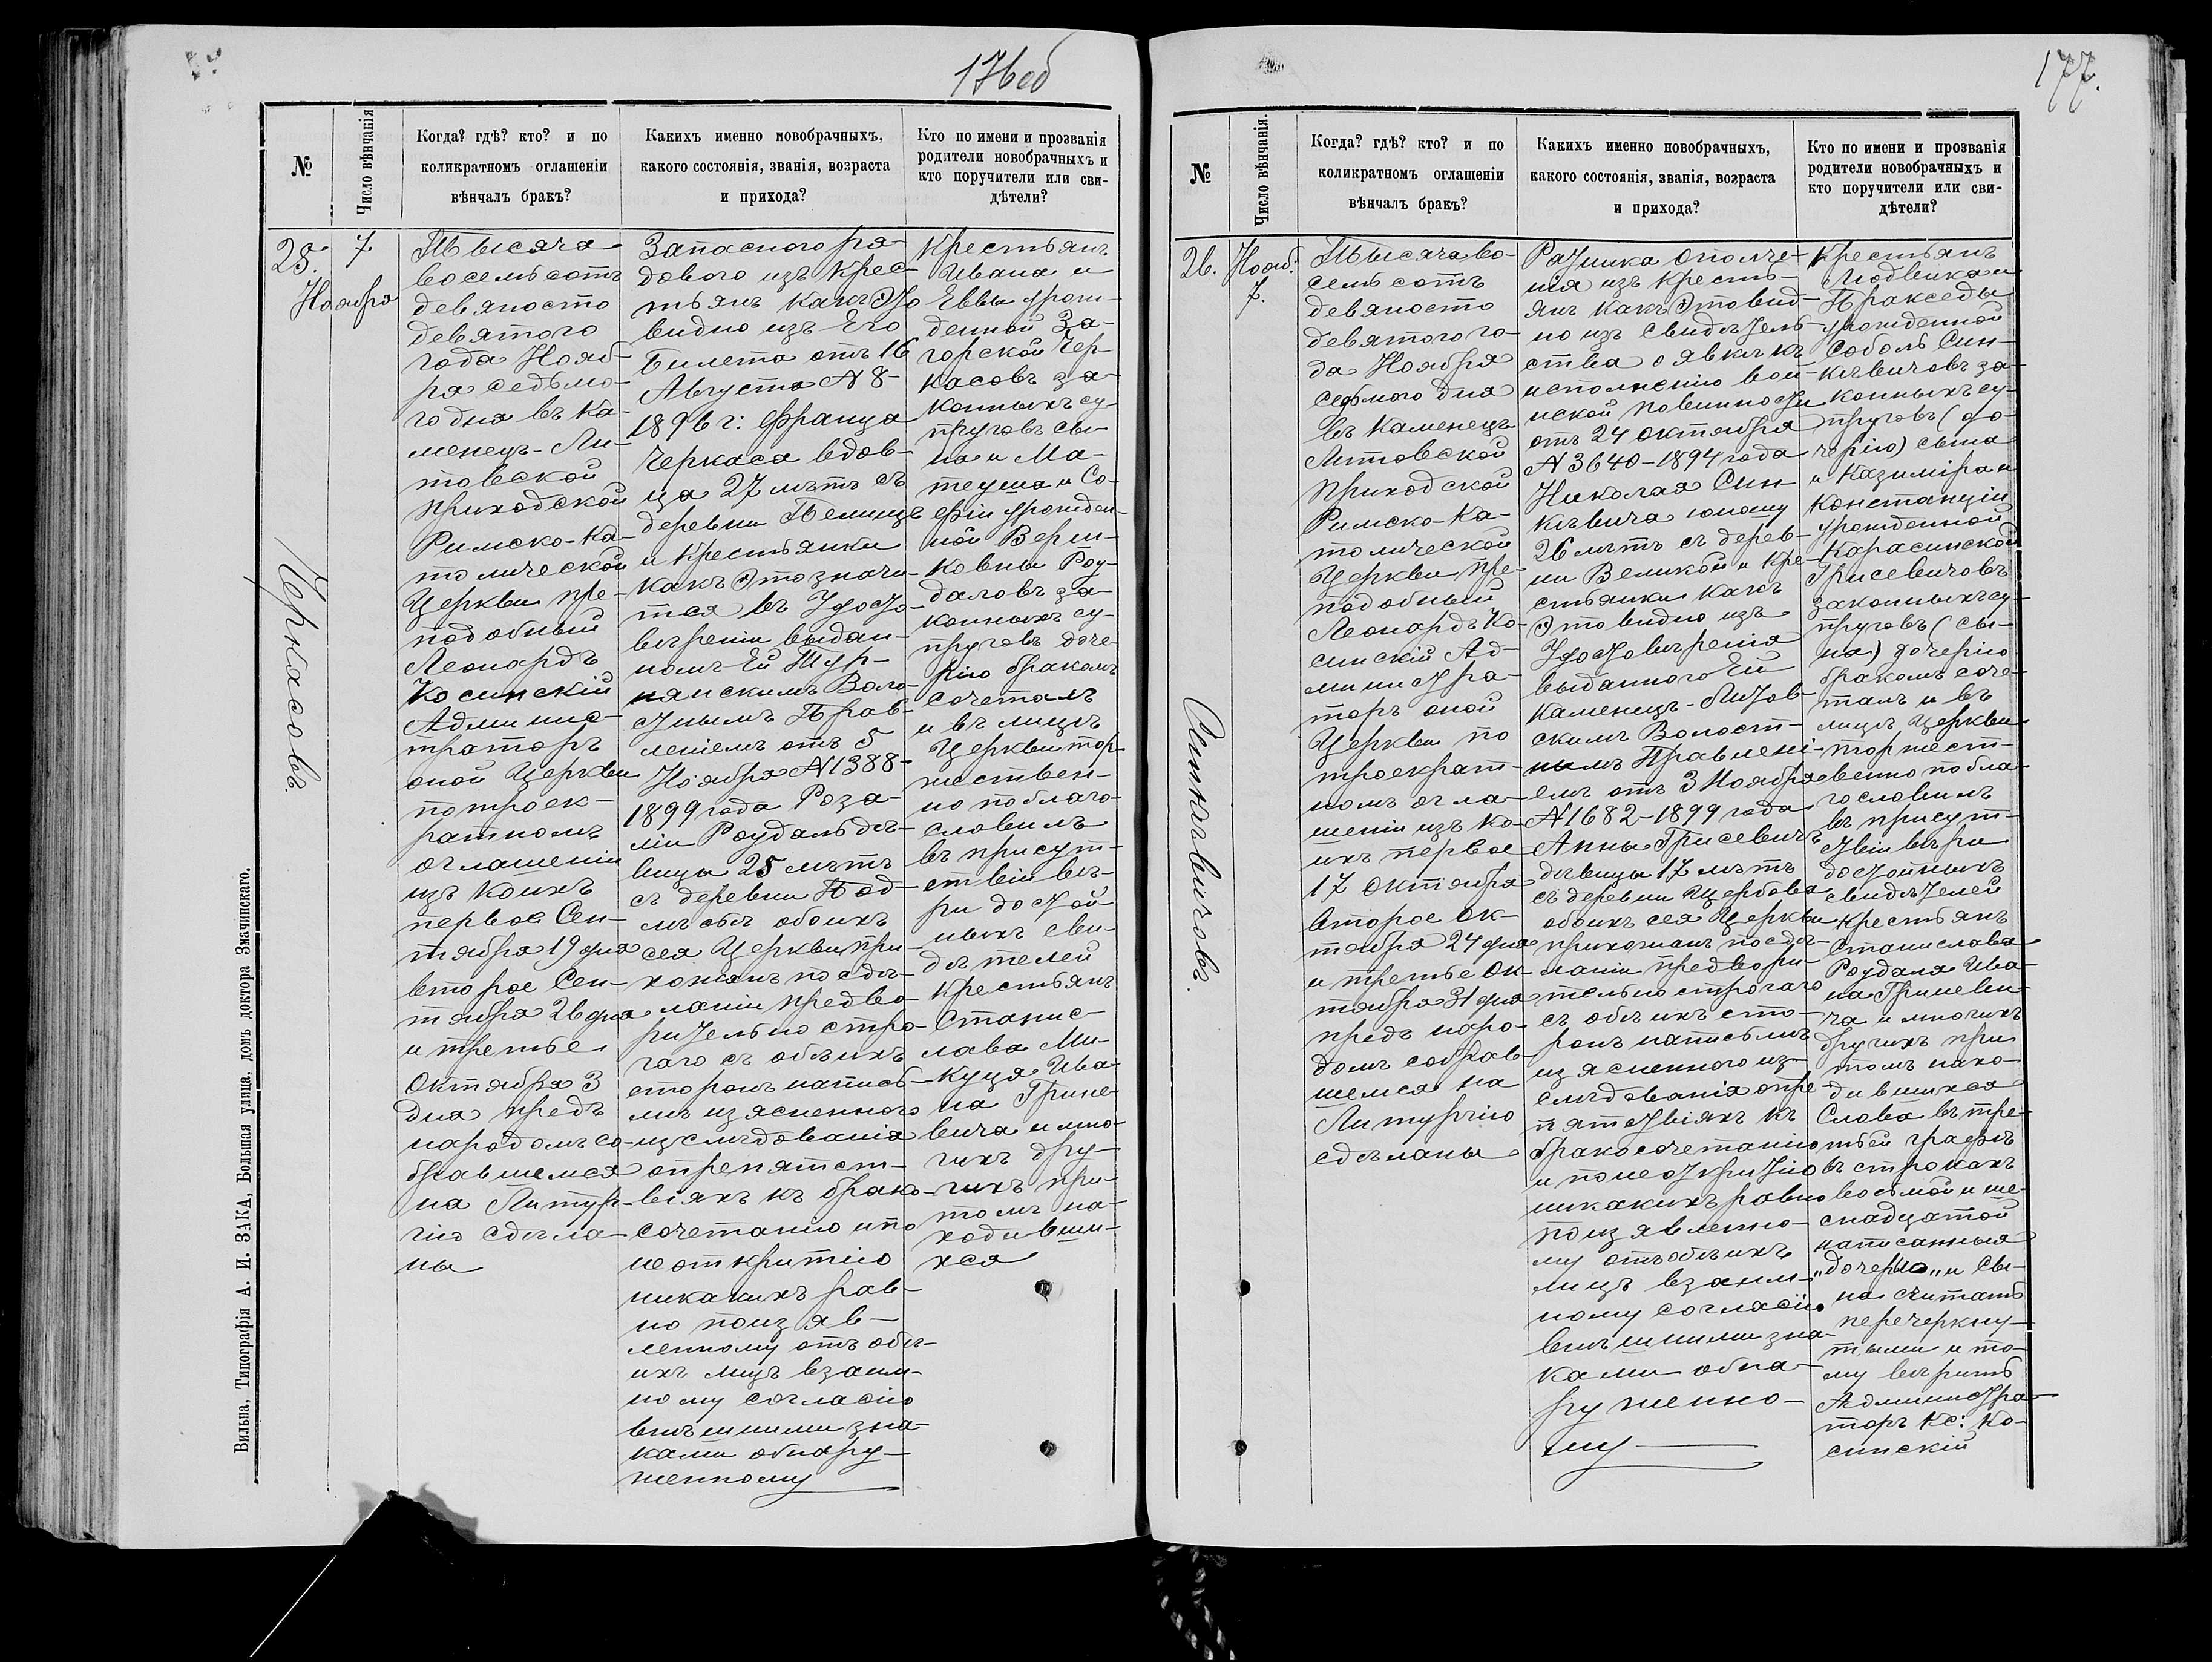 176 об
№
Число вѣнчанія
Когда? гдѣ? кто? и по
коликратномъ оглашеніи
вѣнчалъ бракъ?
Каких​ъ именно новобрачныхъ,
какого состоянія, званія, возраста
и прихода?
Кто по имени и прозванія
родители новобрачныхъ и
кто поручители или сви-
дѣтели?
25.
7
Ноября
Черкасовъ.
Тысяча
восемьсотъ
девяносто
девятого
года Нояб-
ря седьмо-
го дня въ Ка-
менец-Ли-
товской
приходской
Римско-Ка-
толической
Церкви пре-
подобный
Леонардъ
Косинскій
Админис-
траторъ
оной Церкви
по троек-
ратномъ
оглашеніи
изъ коихъ
первое Сен-
тября 19 дня
второе Сен-
тября 26 дня
и третье
Октября 3
дня предъ
народомъ со-
бравшемся
на Литур-
гію сдѣла-
ны
Запасного ря-
дового изъ Крес-
тьянъ какъ это
видно изъ Его
билета отъ 16
Августа № 8-
1896 г: Франца
Черкаса вдов-
ца 27 лѣтъ съ
деревни Пелищъ
и Крестьянки
какъ это значи-
тся въ Удосто-
вѣреніи выдан-
номъ Ей Тур-
нянскимъ Воло-
стнымъ Прав-
леніемъ отъ 5
Ноября № 1388-
1899 года Роза-
ліи Роудаль дѣ-
вицы 25 лѣтъ
съ деревни Под-
лѣсье обоихъ
сея Церкви при-
хожанъ по сдѣ-
ланіи предва-
рительно стро-
гаго съ обѣихъ
сторонъ напись-
мѣ изясненного
изслѣдованія
о препятст-
віяхъ къ брако-
сочетанію и по
не открытію
никакихъ рав-
но по изъяв-
ленному отъ обѣ-
ихъ лицъ взаим-
ному согласію
внѣшними зна-
ками обнару-
женному
Крестьянъ
Ивана и
Евы урож-
денной За-
горской Чер-
касовъ за-
конныхъ су-
пруговъ сы-
на и Ма-
теуша и Со-
фіи урожден-
ной Верем-
ковны Роу-
даловъ за-
конныхъ су-
пруговъ доче-
рію бракомъ
сочеталъ
и въ лицѣ
Церкви тор-
жествен-
но поблаго-
словилъ
въ присут-
ствіи вѣ-
ры достой-
ныхъ сви-
дѣтелей
Крестьянъ
Станис-
лава Ми-
куця Ива-
на Грине-
вича и мно-
гихъ дру-
гихъ при
томъ на-
ходивши-
хся
Вильна, Типографія А. И. ЗАКА, Большая улица, домъ доктора Значинскаго.
177.
№
Число вѣнчанія.
Когда? гдѣ? кто? и по
коликратномъ оглашеніи
вѣнчалъ бракъ?
Какихъ именно новобрачныхъ,
какого состоянія, званія, возраста
и прихода?
Кто по имени и прозванія
родители новобрачныхъ и
кто поручители или сви-
дѣтели?
26.
Нояб:
7.
Синкѣвичовъ.
Тысяча во-
семьсотъ
девяносто
девятого го-
да Ноября
седьмого дня
въ Каменецъ
Литовской
приходской
Римско-Ка-
толической
Церкви пре-
подобный
Леонардъ Ко-
синскій Ад-
министра-
торъ оной
Церкви по
троекрат-
номъ огла-
шеніи изъ ко-
ихъ первое
17 Октября
второе Ок-
тября 24 дня
и третье Ок-
тября 31 дня
предъ наро-
домъ собрав-
шемся на
Литургію
сдѣланы
Ратника ополче-
нія изъ Кресть-
янъ какъ это вид-
но изъ свидѣтель-
ства о явкѣ къ
исполненію вои-
нской повинности
отъ 24 Октября
№ 3640-1894 года
Николая Син-
кѣвича юношу
26 лѣтъ съ дерев-
ни Великой и Кре-
стьянки какъ
это видно изъ
Удостовѣренія
выданного Ей
Каменецъ-Литов-
скимъ Волост-
нымъ Правлені-
емъ отъ 3 Ноября
№ 1682-1899 года
Анны Грисевичъ
дѣвицы 17 лѣтъ
съ деревни Щербова
обоихъ сея Церкви
прихожанъ по сдѣ-
ланіи предвари-
тельно строгаго
съ обѣихъ сто-
ронъ написьмѣ
изясненного из-
слѣдованія о пре-
пятствіяхъ къ
бракосочетанію
и по не открытію
никакихъ равно
по изъявленно-
му отъ обѣихъ
лицъ взаим-
ному согласію
внѣшними зна-
ками обна-
руженно-
му
Крестьянъ
Людвика и
Пракседы
урожденной
Соболь Син-
кѣвичовъ за-
конныхъ су-
пруговъ (до-
черію) сына
и Казиміра и
Констанціи
урожденной
Карасинской
Грисевичовъ
законныхъ су-
пруговъ (сы-
на) дочерію
бракомъ соче-
талъ и въ
лицѣ Церкви
торжест-
венно побла-
гословилъ
въ присут-
ствіи вѣры
достойныхъ
свидѣтелей
Крестьянъ
Станислава
Роудаля Ива-
на Гриневи-
ча и многихъ
другихъ при
томъ нахо-
дившихся
Слова въ тре-
тьей графѣ
въ строкахъ
восьмой и ше-
снадцатой
написанныя
„дочерію„ и сы-
на считать
перечеркну-
тыми и то-
му вѣрить
Администра-
торъ Кс: Ко-
синскій